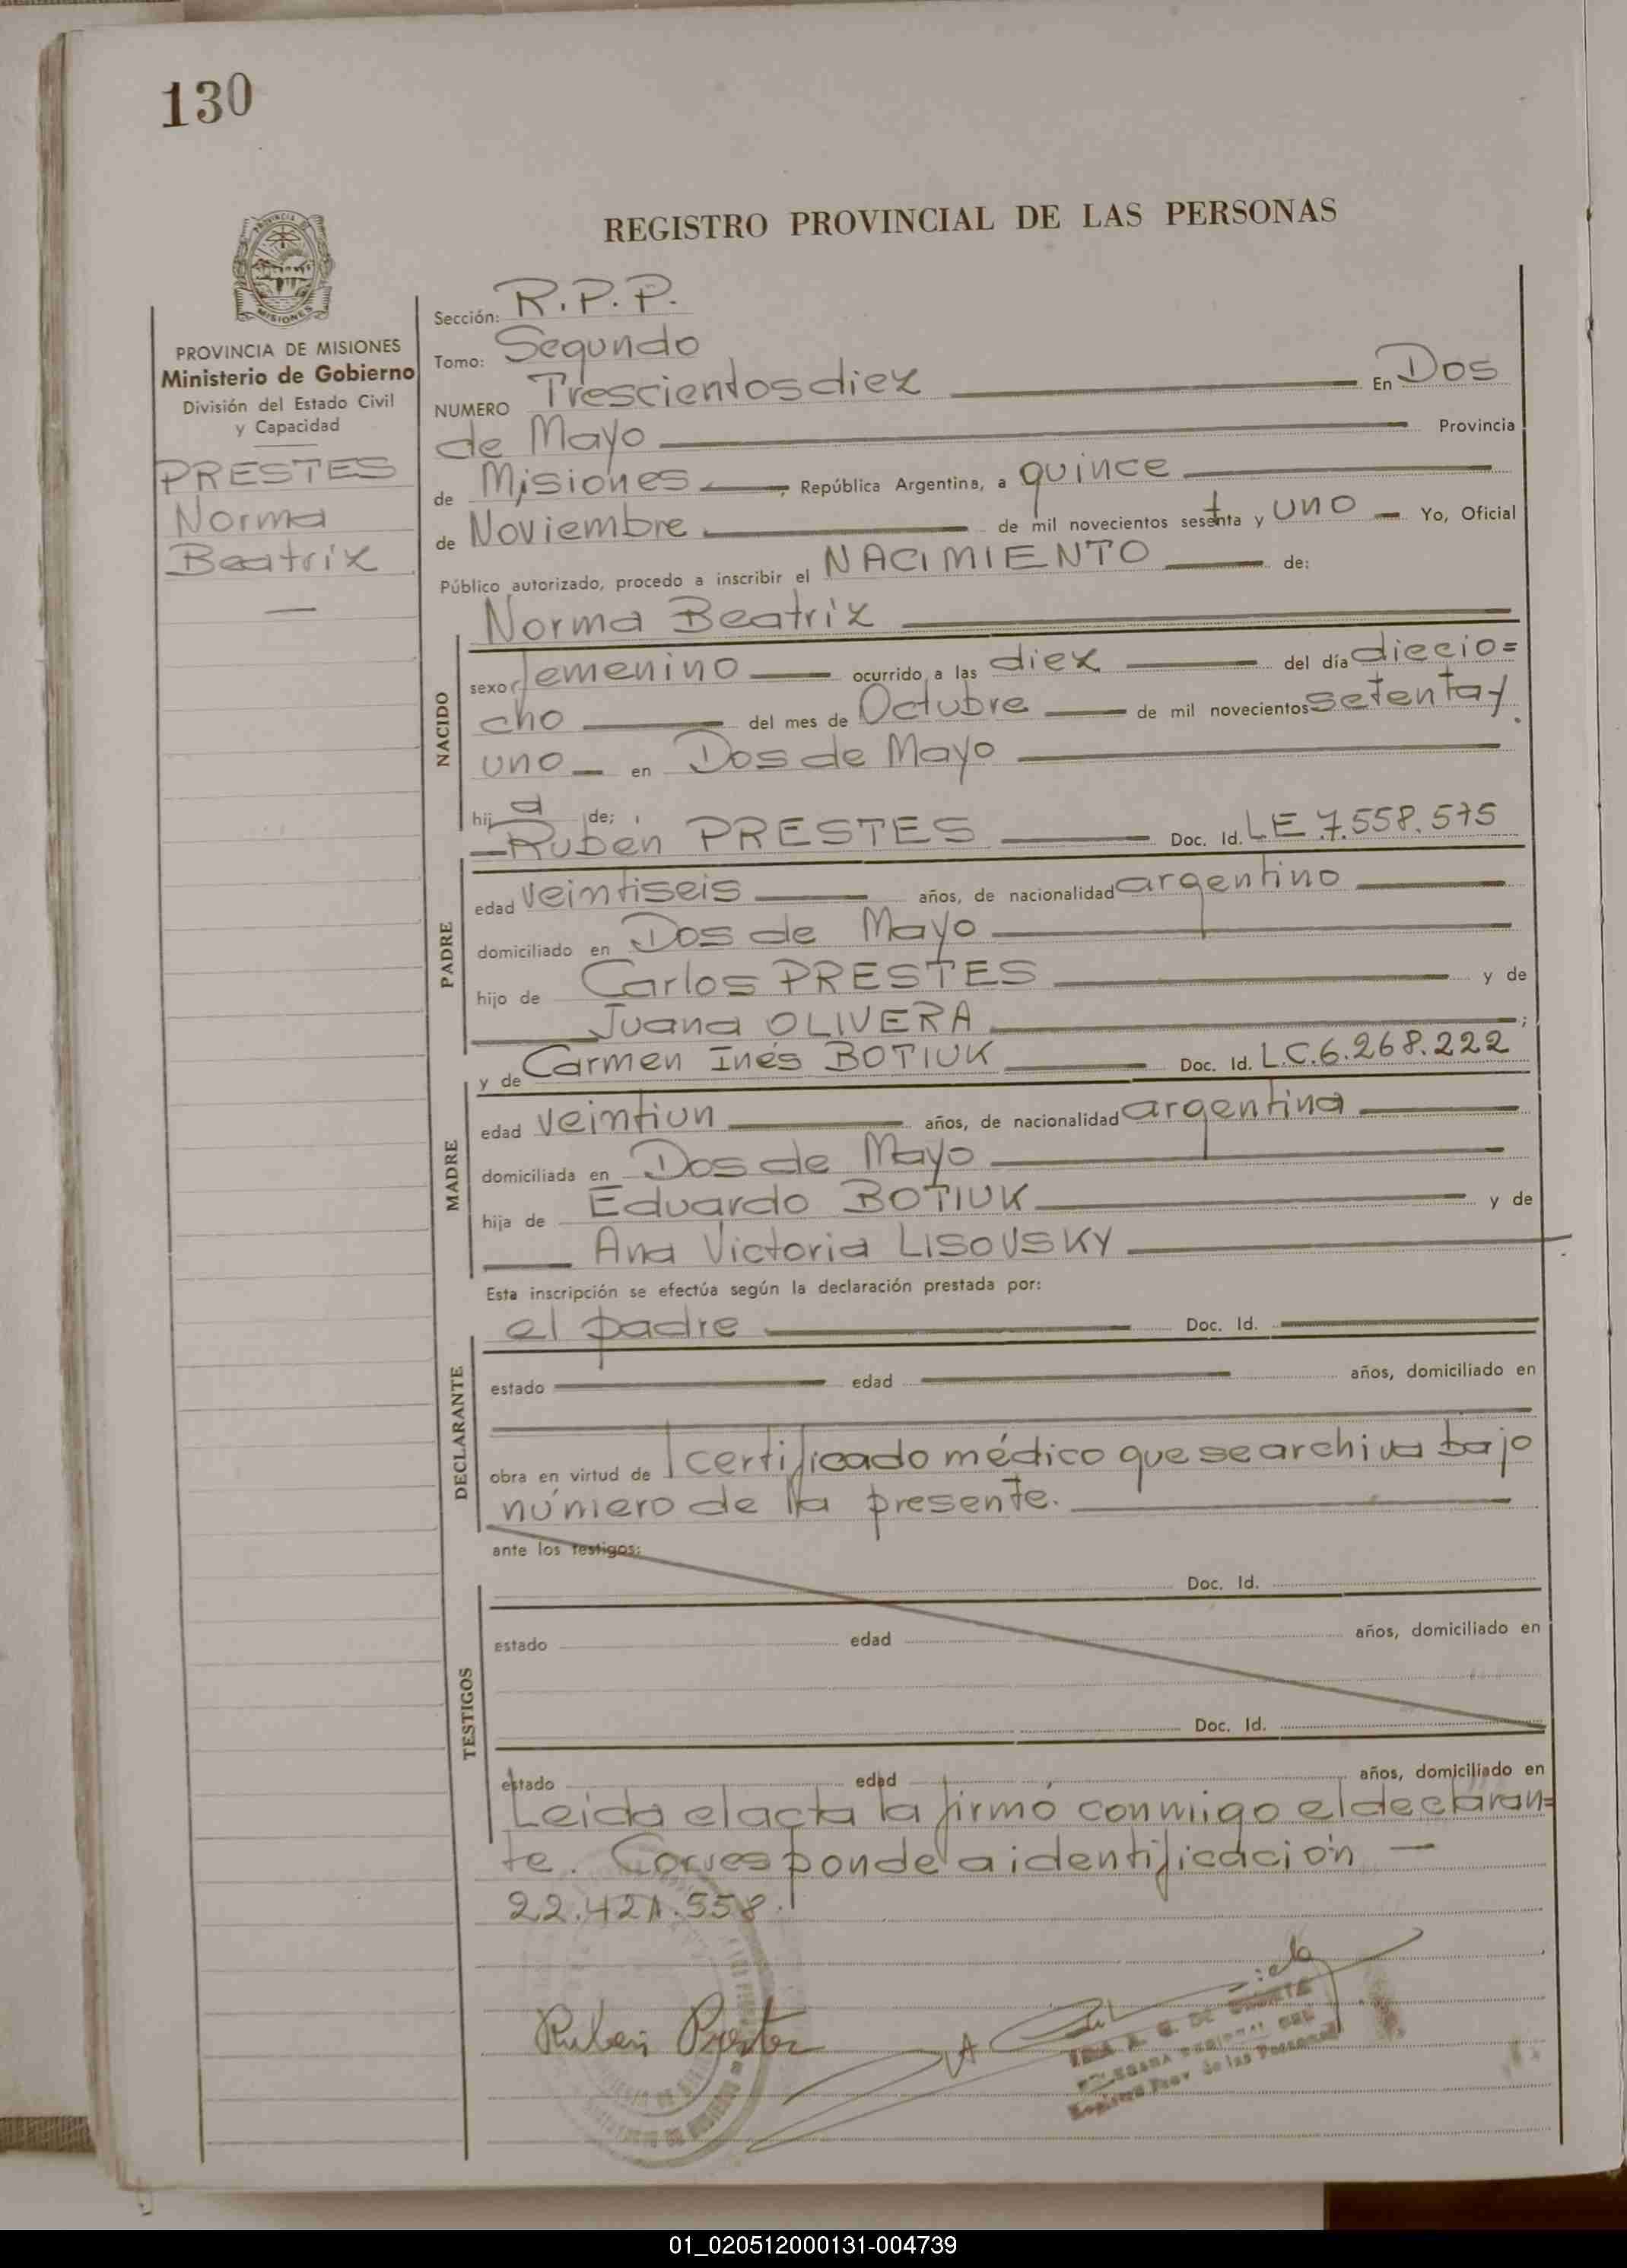 130
REGISTRO PROVINCIAL DE LAS PERSONAS
PROVINCIA DE
MISIONES
PROVINCIA DE MISIONES
Ministerio de Gobierno
División del Estado Civil
y Capacidad
PRESTES
Norma
Beatriz
Sección: R.P.P.
Tomo: Segundo
NUMERO Trescientos diez En Dos
de Mayo Provincia
de Misiones, República Argentina, a quince
de Noviembre de mil novecientos setenta y uno Yo, Oficial
Público autorizado, procedo a inscribir el NACIMIENTO de:
Norma Beatriz
NACIDO
sexo femenino ocurrido a las diez del día diecio=
cho del mes de Octubre de mil novecientos setenta y
uno en Dos de Mayo
hija de:
Rubén PRESTES Doc. Id. LE 7.558.575
PADRE
edad veintiseis años, de nacionalidad argentino
domiciliado en Dos de Mayo
hijo de Carlos PRESTES y de
Juana OLIVERA;
y de Carmen Inés BOTIUK Doc. Id. L.C.6.268.222
MADRE
edad veintiun años, de nacionalidad argentina
domiciliada en Dos de Mayo
hija de Eduardo BOTIUK y de
Ana Victoria LISOVSKY
Esta inscripción se efectúa según la declaración prestada por:
el padre Doc. Id.
DECLARANTE
estado edad años, domiciliado en
obra en virtud de l certificado médico que se archiva bajo
número de la presente.
ante los testigos:
Doc. Id.
TESTIGOS
estado edad años, domiciliado en
Doc. Id.
estado edad años, domiciliado en
Leida el acta la firmó conmigo el declaran=
te. Corresponde a identificación
22.421.558.
Rubén Prestes
Registro Prov. de las Personas
01_020512000131-004739